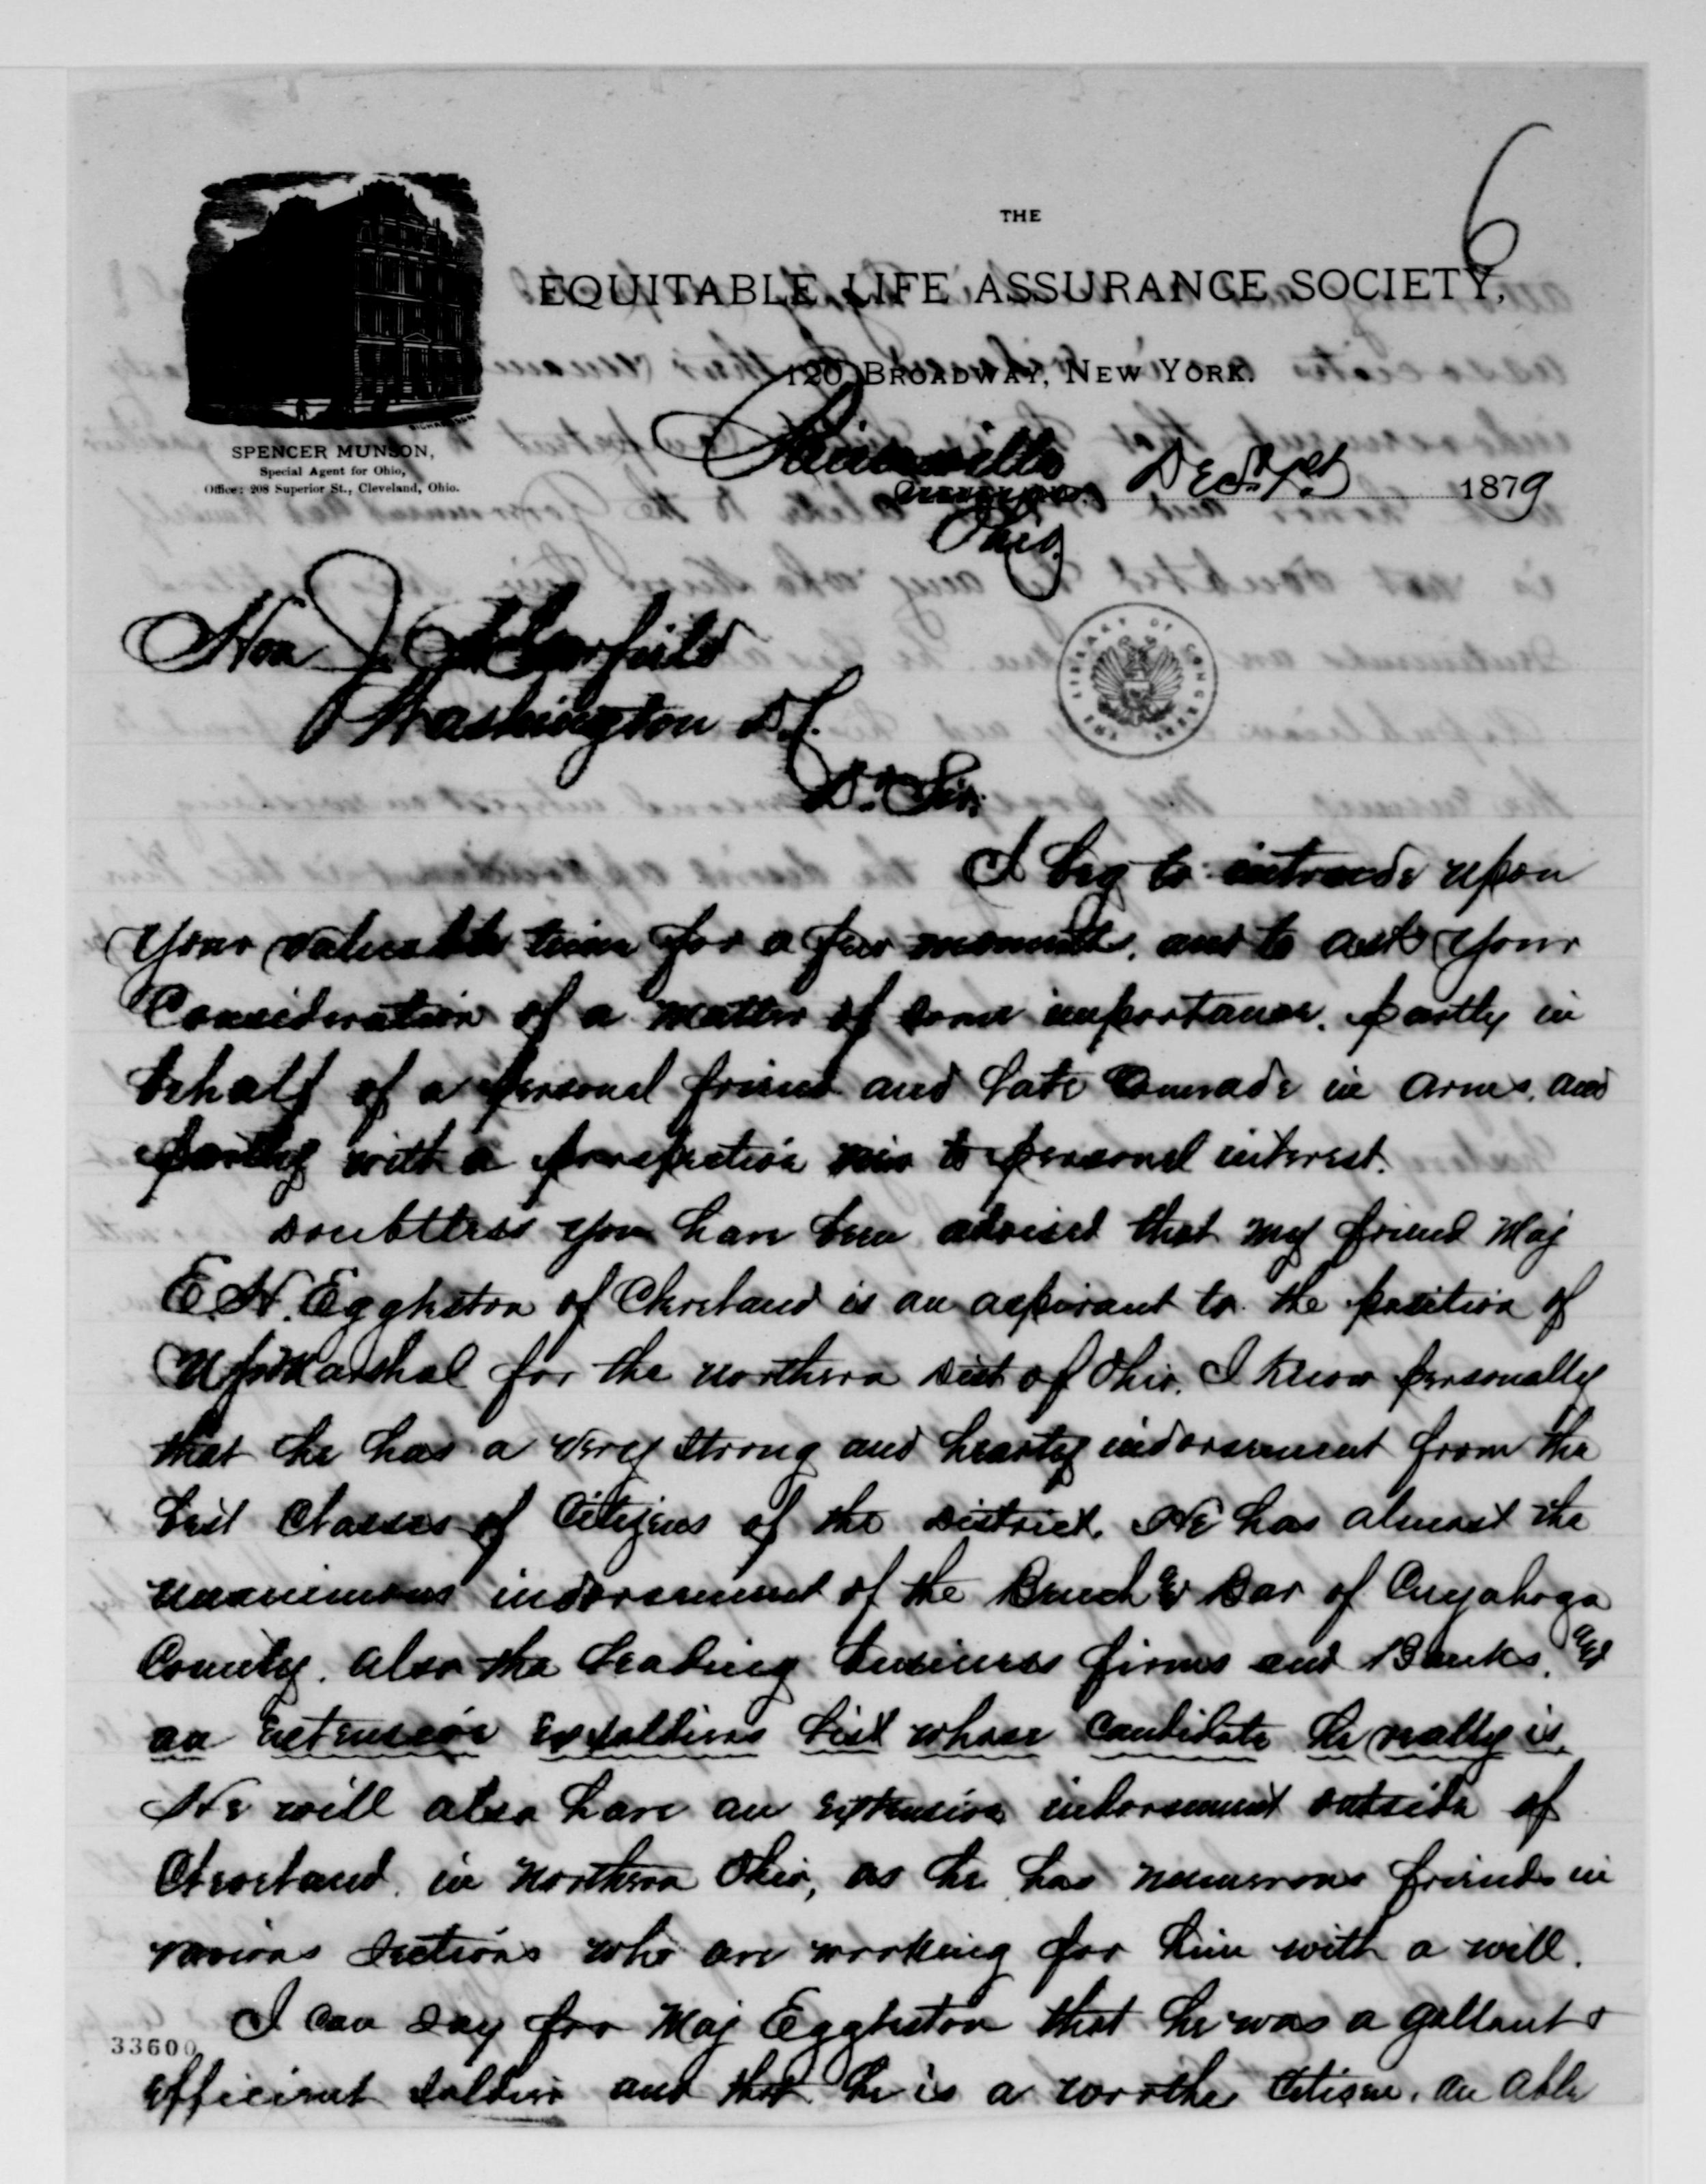 6
THE
EQUITABLE LIFE ASSURANCE SOCIETY,
120 BROADWAY, NEW YORK.
SPENCER MUNSON,
Special Agent for Ohio,
Office: 208 Superior St., Cleveland, Ohio.
Painesville Dec. 1st 1879
Ohio
Hon J. A. Garfield
Washington D.C.
LIBRARY OF CONGRESS
Dr Sir:
I beg to intrude upon
your valuable time for a few moments, and to ask your
Consideration of a matter of some importance, partly in
behalf of a personal friend and late Comrade in arms, and
partly with a prospective view to personal interest.
Doubtless you have been advised that my friend Maj
E. H. Eggleston of Cleveland is an aspirant to the position of
U.S. Marshal for the northern Dist of Ohio. I know personally
that he has a very strong and hearty indorsement from the
best Classes of Citizens of the District. He has almost the
unanimous indorsement of the Bench & Bar of Cuyahoga
County. also the leading business firms and Banks, &
an extensive Ex soldiers list whose candidate he really is.
He will also have an extensive indorsement outside of
Cleveland, in Northern Ohio, as he has numerous friends in
various Sections who are working for him with a will.
I can say for Maj Eggleston that he was a gallant &
33600
efficient soldier and that he is a worthy Citizen, an able